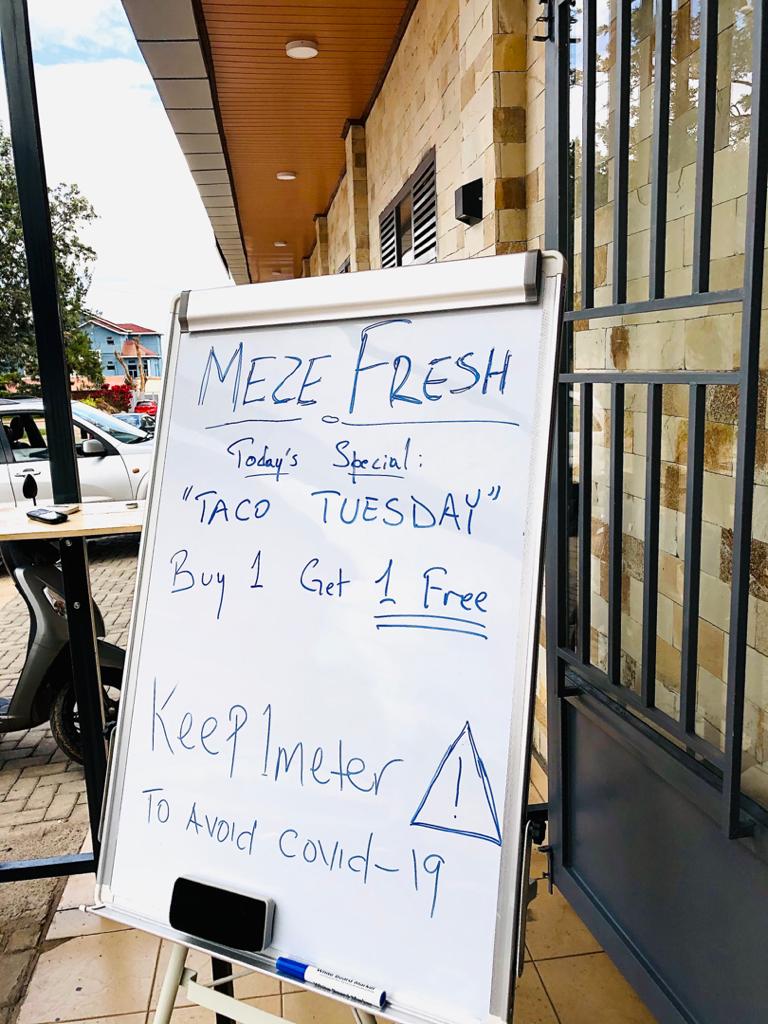 MEZE FRESH
Today's Special:
"TACO TUESDAY"
Buy 1 Get 1 Free
Keep 1meter
!
To Avoid Covid-19
White Board Marker